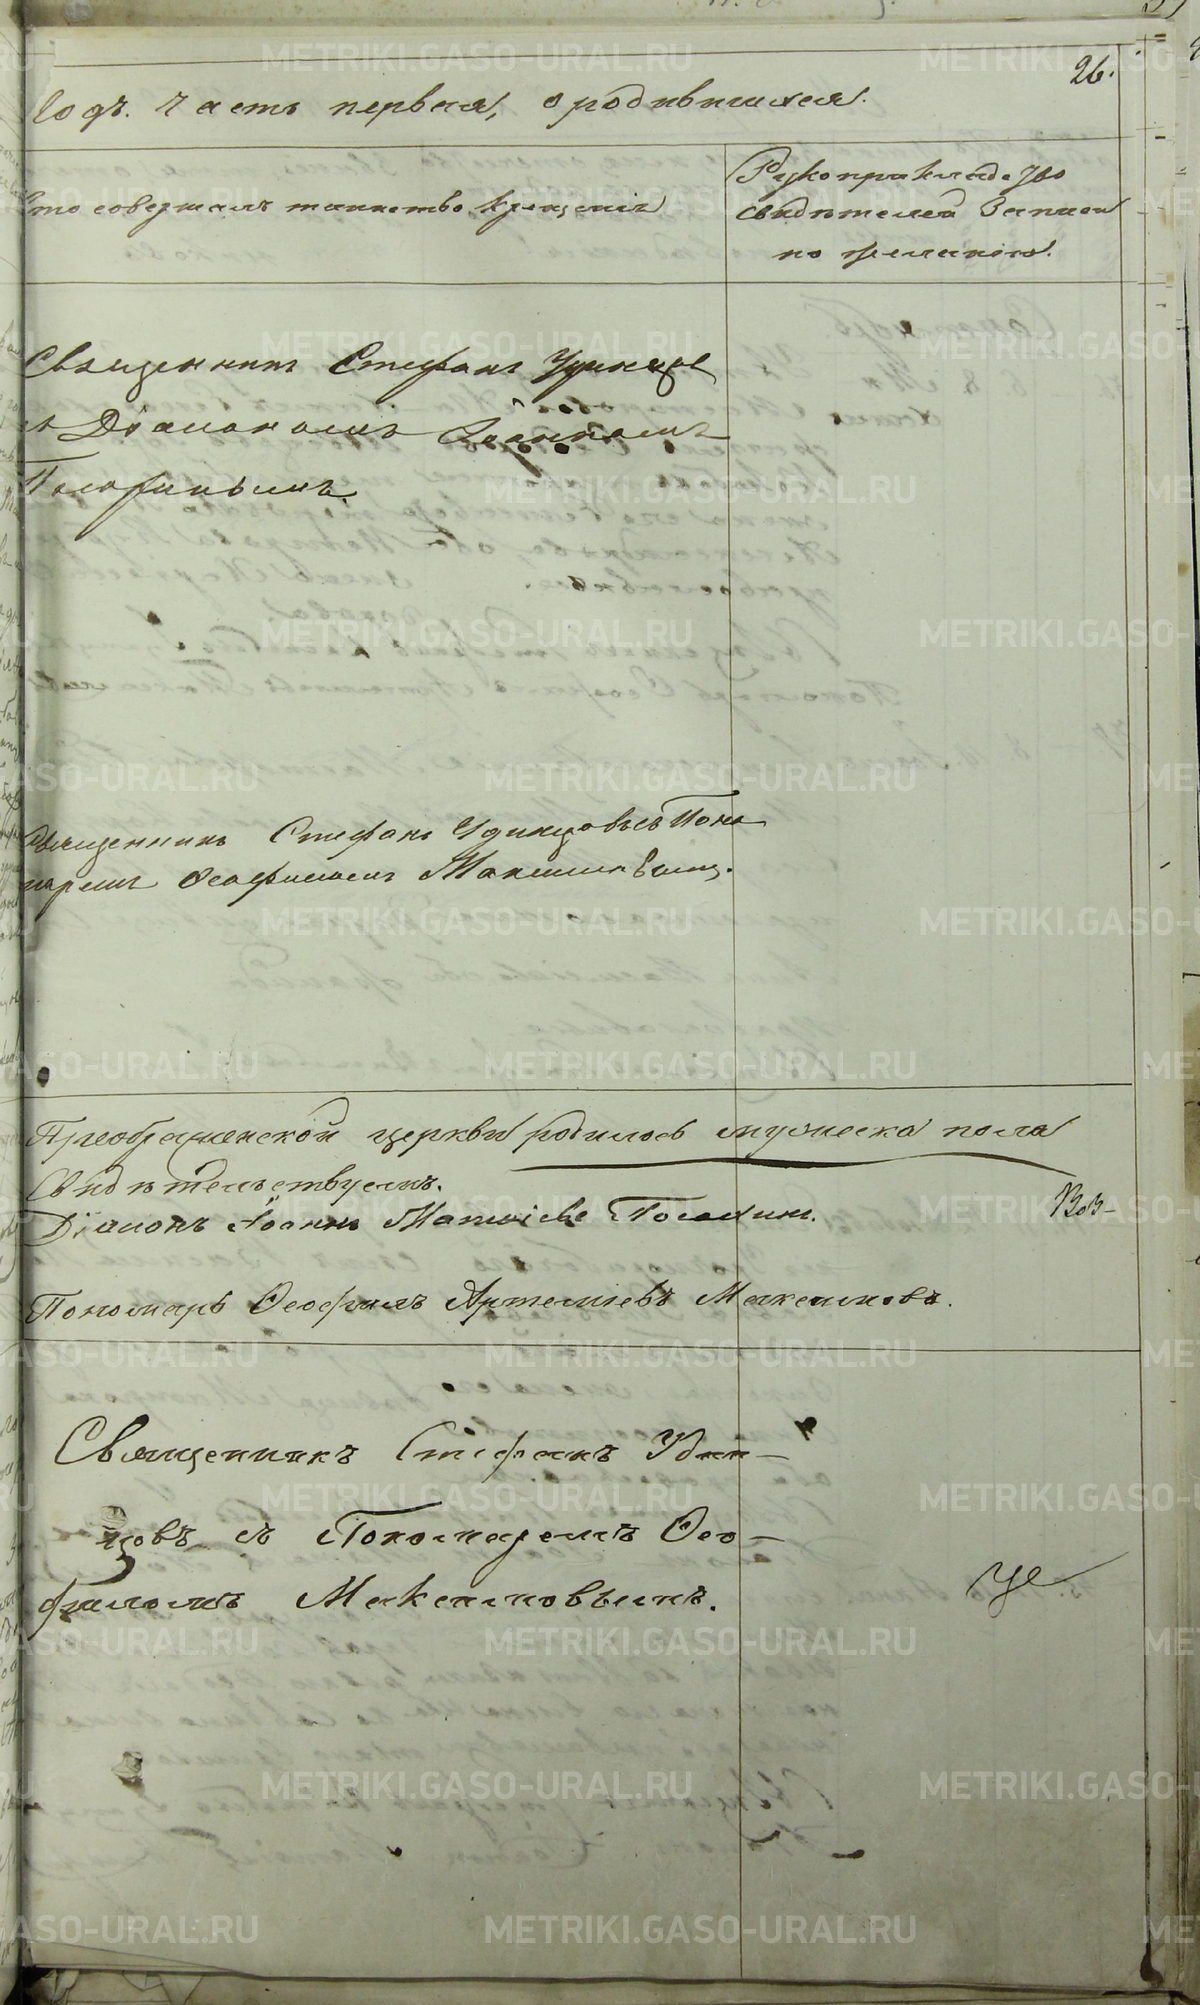 26.
годъ. Часть первая, о родившихся.
Кто совершалъ таинство крещенія
Рукоприкладство
свидѣтелей записи
по желанію.
Священникъ Стефанъ Удинцов
съ Діакономъ Іоанномъ
Священникъ Стефанъ Удинцовъ съ Поно
маремъ Ѳеофиломъ Максимовымъ.
Преображенской церкви родилось мужеска пола
Свидѣтельствуемъ.
Діаконъ Іоаннъ Матвіевъ
Пономарь Ѳеофилъ Артеміевъ Максимовъ.
Священникъ Стефанъ Удин-
цовъ съ Пономаремъ Ѳео-
филомъ Максимовымъ.
METRIKI.GASO-URAL.RU